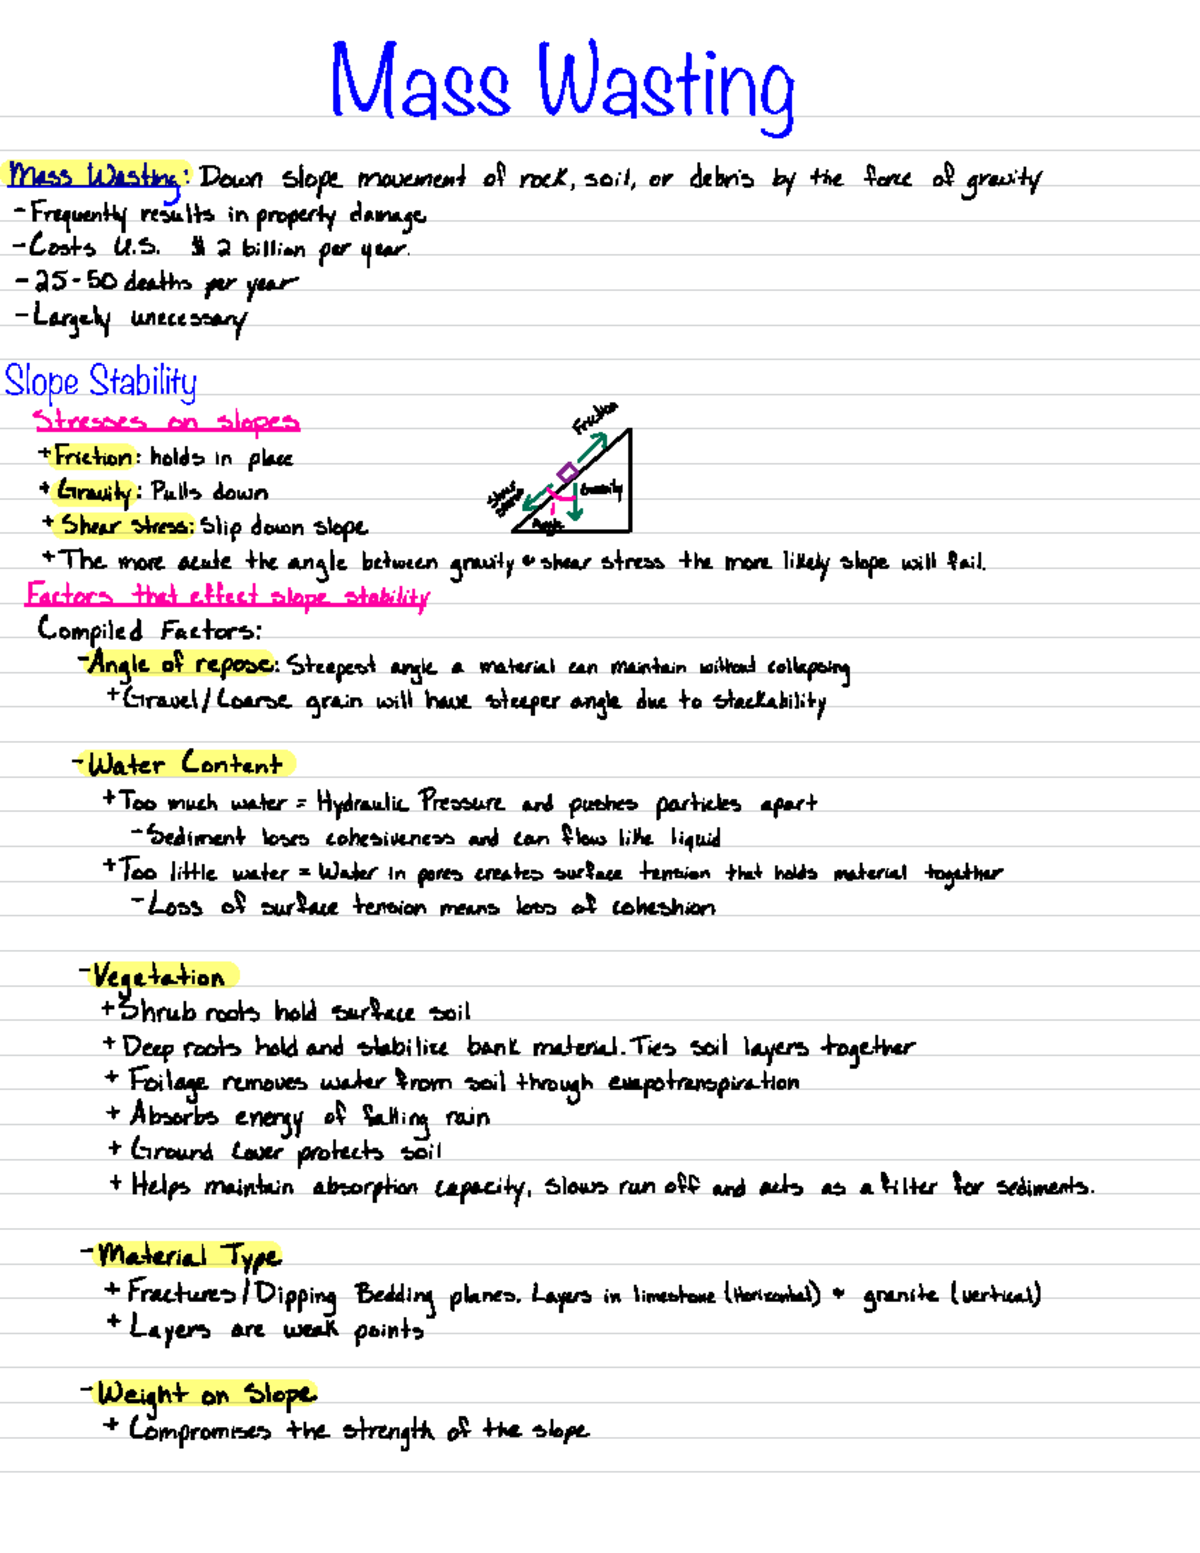 Mass Wasting
Mass Wasting: Down slope movement of rock, soil, or debris by the force of gravity
-Frequently results in property damage
-Costs U.S. $2 billion per year.
-25-50 deaths per year
-Largely unecessary
Slope Stability
Stresses on slopes
Friction
+Friction: holds in place
+Gravity: Pulls down
Gravity
Shear Stress
+Shear stress: Slip down slope
Angle
+The more acute the angle between gravity & shear stress the more likely slope will fail.
Factors that effect slope stability
Compiled Factors:
-Angle of repose: Steepest angle a material can maintain without collapsing
+Gravel/Coarse grain will have steeper angle due to stackability
-Water Content
+Too much water = Hydraulic Pressure and pushes particles apart
-Sediment loses cohesiveness and can flow like liquid
+Too little water = Water in pores creates surface tension that holds material together
-Loss of surface tension means loss of coheshion
-Vegetation
+Shrub roots hold surface soil
+Deep roots hold and stabilize bank material. Ties soil layers together
+Foilage removes water from soil through evapotranspiration
+Absorbs energy of falling rain
+Ground cover protects soil
+Helps maintain absorption capacity, slows run off and acts as a filter for sediments.
-Material Type
+Fractures/Dipping Bedding planes. Layers in limestone (Horizontal) & granite (vertical)
+Layers are weak points
-Weight on Slope
+Compromises the strength of the slope